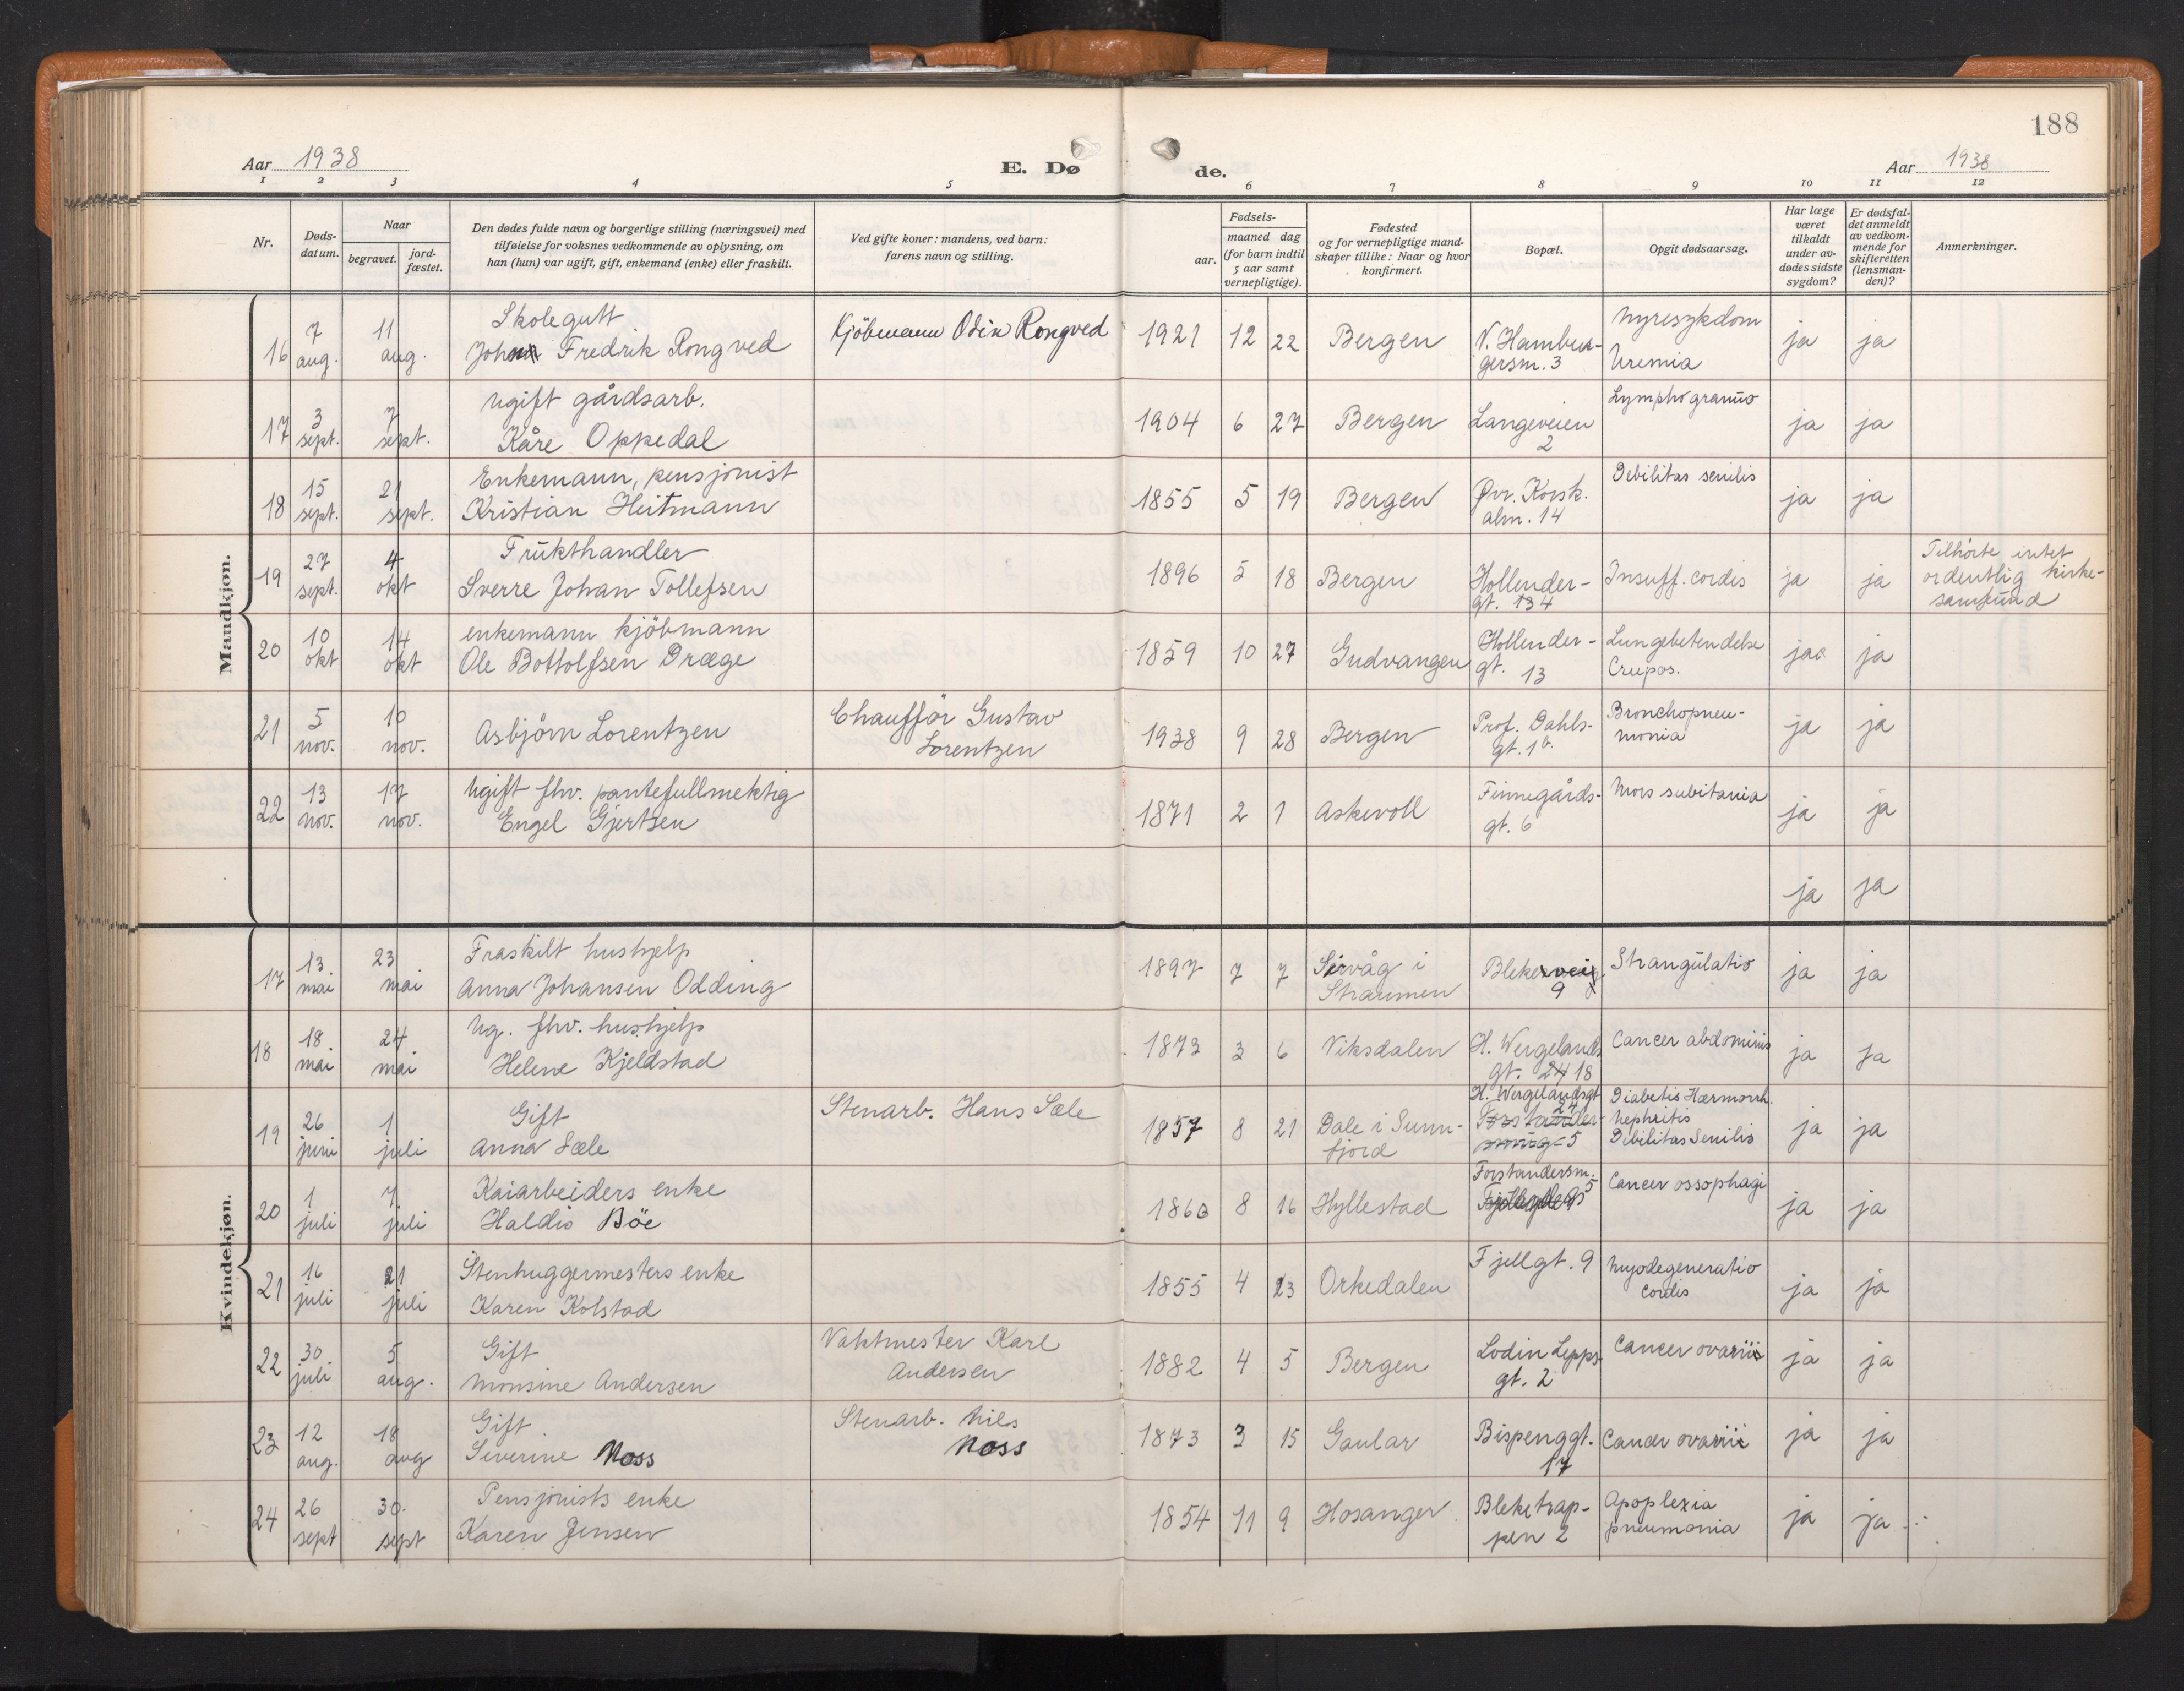 188
Aar 1938
E. Dø
de.
Aar 1938
1 2 3 4 5 6 7 8 9 10 11 12
Nr.
Døds-
datum.
Naar
begravet.
jord-
fæstet.
Den dødes fulde navn og borgerlige stilling (næringsvei) med
tilføielse for voksnes vedkommende av oplysning, om
han (hun) var ugift, gift, enkemand (enke) eller fraskilt.
Ved gifte koner: mandens, ved barn:
farens navn og stilling.
Fødsels-
aar.
maaned dag
(for barn indtil
5 aar samt
vernepligtige).
Fødested
og for vernepligtige mand-
skaper tillike: Naar og hvor
konfirmert.
Bopæl.
Opgit dødsaarsag.
Har læge
været
tilkaldt
under av-
dødes sidste
sygdom?
Er dødsfal-
det anmeldt
av vedkom-
mende for
skifteretten
(lensman-
den)?
Anmerkninger.
Mandkjøn.
16 7 aug. 11 aug.
Skolegutt
John Fredrik Rongved
Kjöbmann Odin Rongved
1921 12 22 Bergen
V. Hambur-
gersm. 3
Nyresykdom
Uremia
ja ja
17 3 sept. 7 sept.
Ugift gårdsarb.
Kåre Oppedal
1904 6 27 Bergen
Langeveien
2
Lymphogranuo
ja ja
18 15 sept. 21 sept.
Enkemann, pensjonist
Kristian Heitmann
1855 5 19 Bergen
Øvr. Korsk.
alm. 14
Debilitas senilis
ja ja
19 27 sept. 4 okt
Frukthandler
Sverre Johan Tollefsen
1896 5 18 Bergen
Hollender-
gt. 134
Insuff. cordis
ja ja
Tilhörte intet
ordentlig kirke-
samfund
20 10 okt 14 okt
enkemann kjöbmann
Ole Bottolfsen Dræge
1859 10 27 Gudvangen
Hollender-
gt. 13
Lungebetendelse
Crupos.
jaa ja
21 5 nov. 10 nov.
Asbjörn Lorentzen
Chaufför Gustav
Lorentzen
1938 9 28 Bergen
Prof. Dahls-
gt. 1b.
Bronchopneu-
monia
ja ja
22 13 nov. 17 nov.
Ugift fhv. pantefullmektig
Engel Gjertsen
1871 2 1 Askevoll
Finnegårds-
gt. 6
Mors subitania
ja ja
ja ja
Kvindekjøn.
17 13. mai 23 mai
Fraskilt hushjelp
Anna Johansen Odding
1897 7 7
Sørvåg i
Straumen
Blekevei
9
Strangulatio
ja ja
18 18 mai 24 mai
Ug. fhv. hushjelp
Helene Kjeldstad
1873 3 6 Viksdalen
H. Wergelands
gt. 24 18
Cancer abdominis
ja ja
19 26 juni 1 juli
Gift
Anna Sæle
Stenarb. Hans Sæle
1857 8 21
Dale i Sunn-
fjord
H. Wergelandsgt
24
Forstander-
smug 5
Diabetis Hærmorrh.
nephritis
Debilitas Senilis
ja ja
20 1 juli 7 juli
Kaiarbeiders enke
Haldis Böe
1860 8 16 Hyllestad
Forstandersm.
5
Cancer ossophagi
ja ja
21 16 juli 21 juli
Stenhuggermesters enke
Karen Kolstad
1855 4 23 Orkedalen
Fjellgt. 9
Myodegeneratio
cordis
ja ja
22 30 juli 5 aug.
Gift
Monsine Andersen
Vaktmester Karl
Andersen
1882 4 5 Bergen
Lodin Lepps-
gt. 2
Cancer ovarii
ja ja
23 12 aug. 18 aug
Gift
Severine Moss
Stenarb. Nils
Moss
1873 3 15 Gaular
Bispenggt.
17
Cancer ovarii
ja ja
24 26 sept 30. sept
Pensjonists enke
Karen Jensen
1854 11 9 Hosanger
Bleketrap-
pen 2
Apoplexia
pneumonia
ja ja